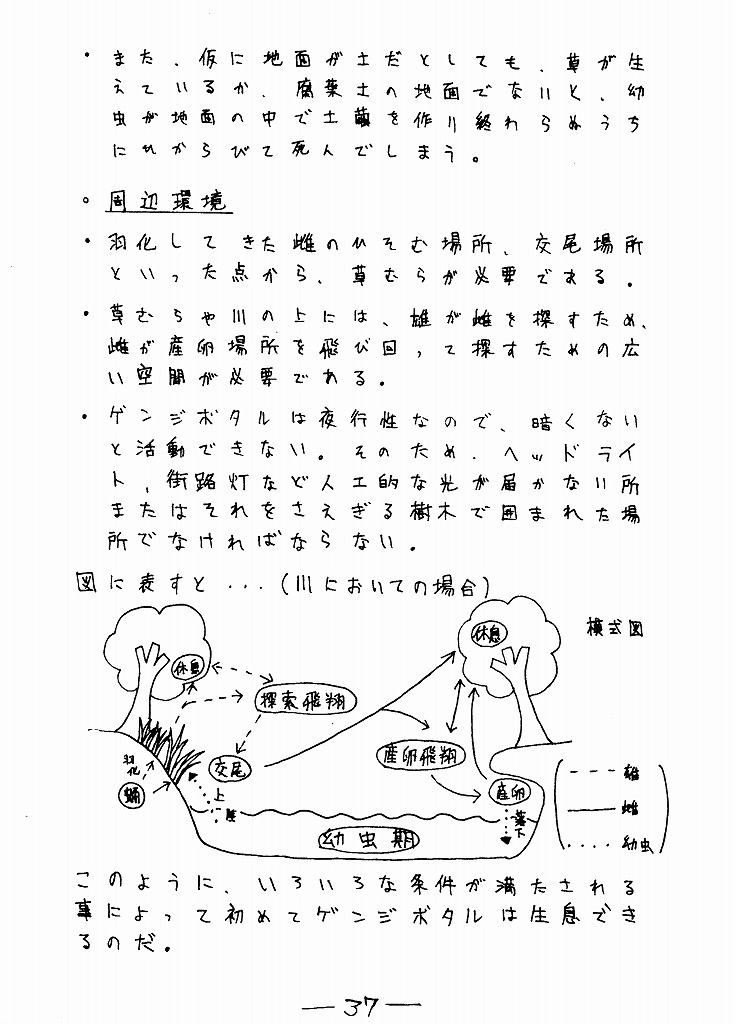 ・また、仮に地面が土だとしても、草が生
えているか、腐葉土の地面でないと、幼
虫が地面の中で土繭を作り終わらぬうち
にひからびて死んでしまう。
○周辺環境
・羽化してきた雌のひそむ場所、交尾場所
といった点から、草むらが必要である。
・草むらや川の上には、雄が雌を探すため、
雌が産卵場所を飛び回って探すための広
い空間が必要である。
・ゲンジボタルは夜行性なので、暗くない
と活動できない。そのため、ヘッドライ
ト、街路灯など人工的な光が届かない所
またはそれをさえぎる樹木で囲まれた場
所でなければならない。
図に表すと...(川においての場合)
模式図
休息
休息
探索飛翔
産卵飛翔
羽化
蛹
交尾
上陸
産卵
落下
幼虫期
雄
雌
幼虫
このように、いろいろな条件が満たされる
事によって初めてゲンジボタルは生息でき
るのだ。
—37—